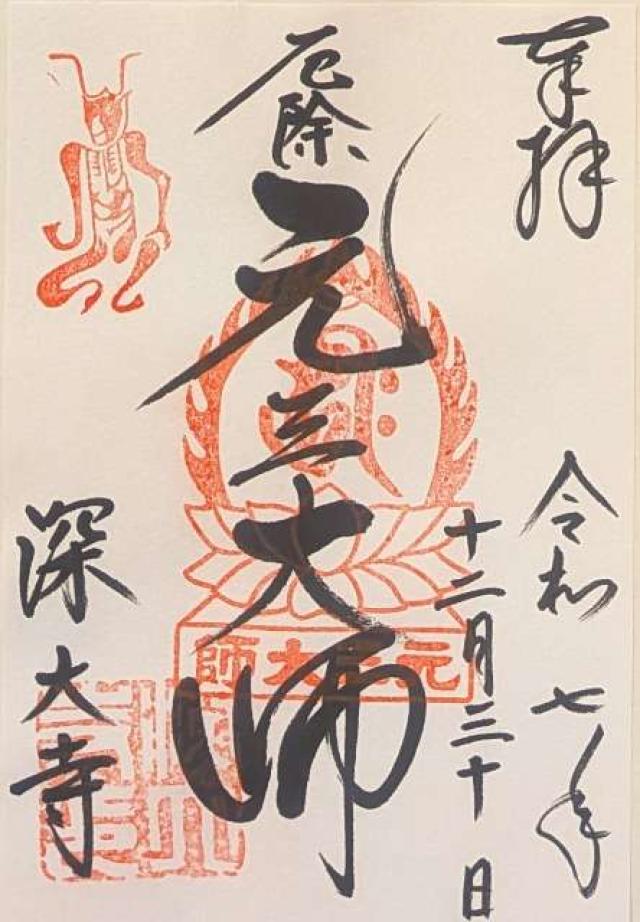 奉拝
令和七年
十二月三十日
厄除
元三大師
元三大師
深大寺